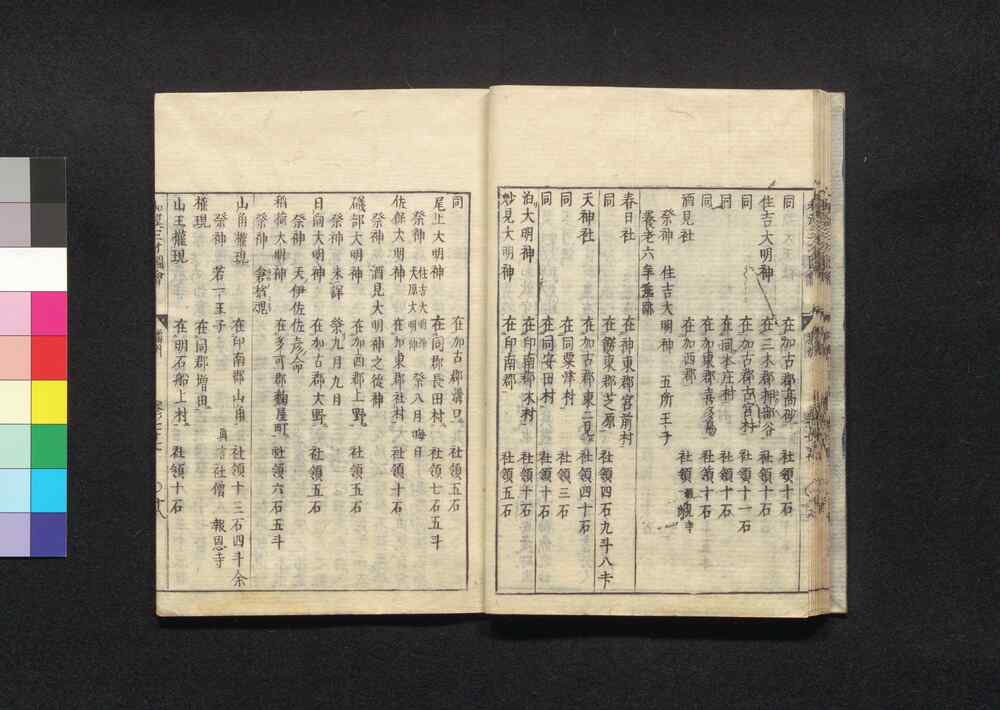 同 在加古郡高砂 社領十石
住吉大明神 在三木郡 谷 社領十石
同 在加古郡古宮村 社領十一石
同 在同本庄村 社領十石
同 在加東郡 社領十石
酒見社 在加西郡 社領
祭神 住吉大明神 五所王子
養老六年
春日社 在神東郡宮前村 社領四石九斗八升
同 在飾東郡芝原
天神社 在加古郡東二見 社領四十石
同 在同粟津村 社領三石
同 在同安田村 社領十石
泊大明神 在印南郡木村 社領十石
妙見大明神 在印南郡 社領五石
同 在加古郡溝口 社領五石
尾上大明神 在同郡長田村 社領七石五斗
祭神 住吉大明神 祭八月晦日
佐保大明神 在加東郡社村 社領十石
祭神 酒見大明神之從神
磯部大明神 在加西郡上野 社領五石
祭神 未詳 祭九月九日
日向大明神 在加古郡大野 社領五石
祭神 天伊佐佐彦命
稻荷大明神 在多可郡麹屋町 社領六石五斗
祭神 倉稻魂
山角權現 在印南郡山角 社領十三石四斗余
祭神 若一王子 社僧 報恩寺
權現 在同郡増田
山王權現 在明石船上村 社領十石